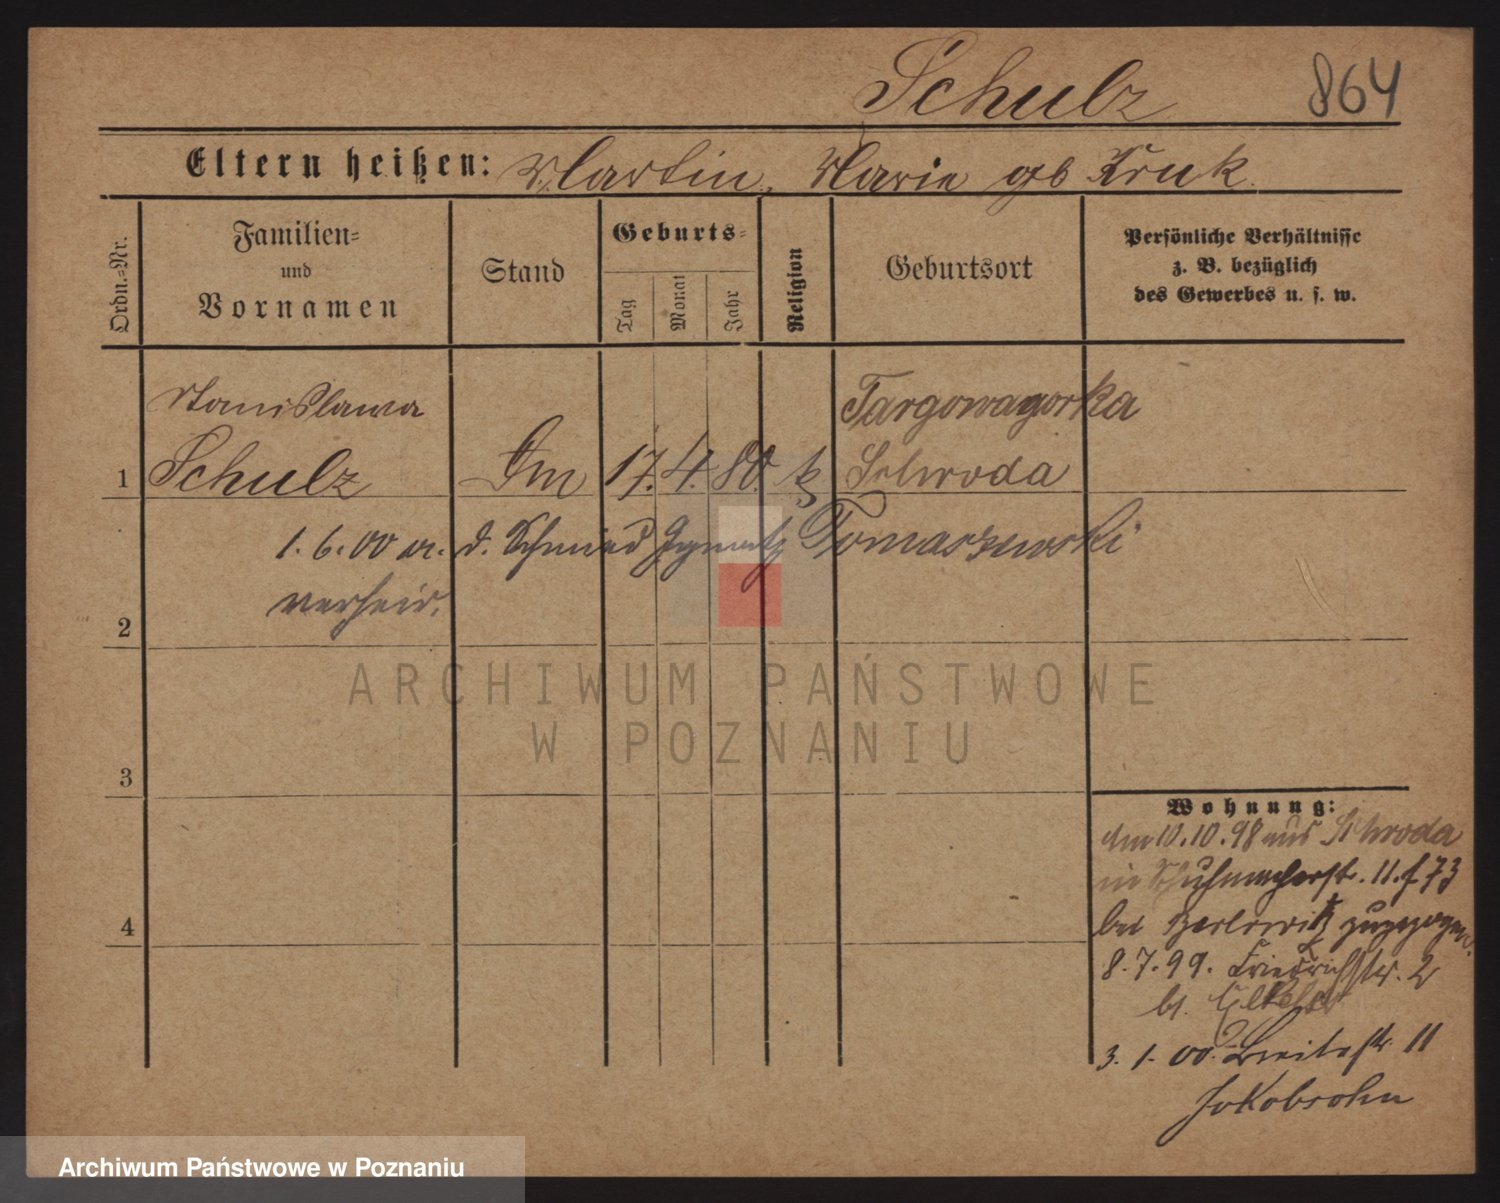 Schulz 864
Eltern heißen: Martin, Marie gb Kruk.
Ordn.-Nr.
Familien-
und
Vornamen
Stand
Geburts-
Tag
Monat
Jahr
Religion
Geburtsort
Persönliche Verhältnisse
z. B. bezüglich
des Gewerbes u. s. w.
Stanislawa Targowagorka
1 Schulz 17. 4. 80. k Schroda
1. 6. 00 m. d. Schmied Ignatz Tomaszewski
verheir.
2
3
4
ARCHIWUM PAŃSTWOWE
W POZNANIU
Wohnung:
Am 10.10.98 aus Schroda
in Schuhmacherstr. 11. f. 73
bei zugezogen.
8.7.99. Friedrichstr. 2
bs.
3. 1. 00. Breitestr. 11
Jakobsohn
Archiwum Państwowe w Poznaniu